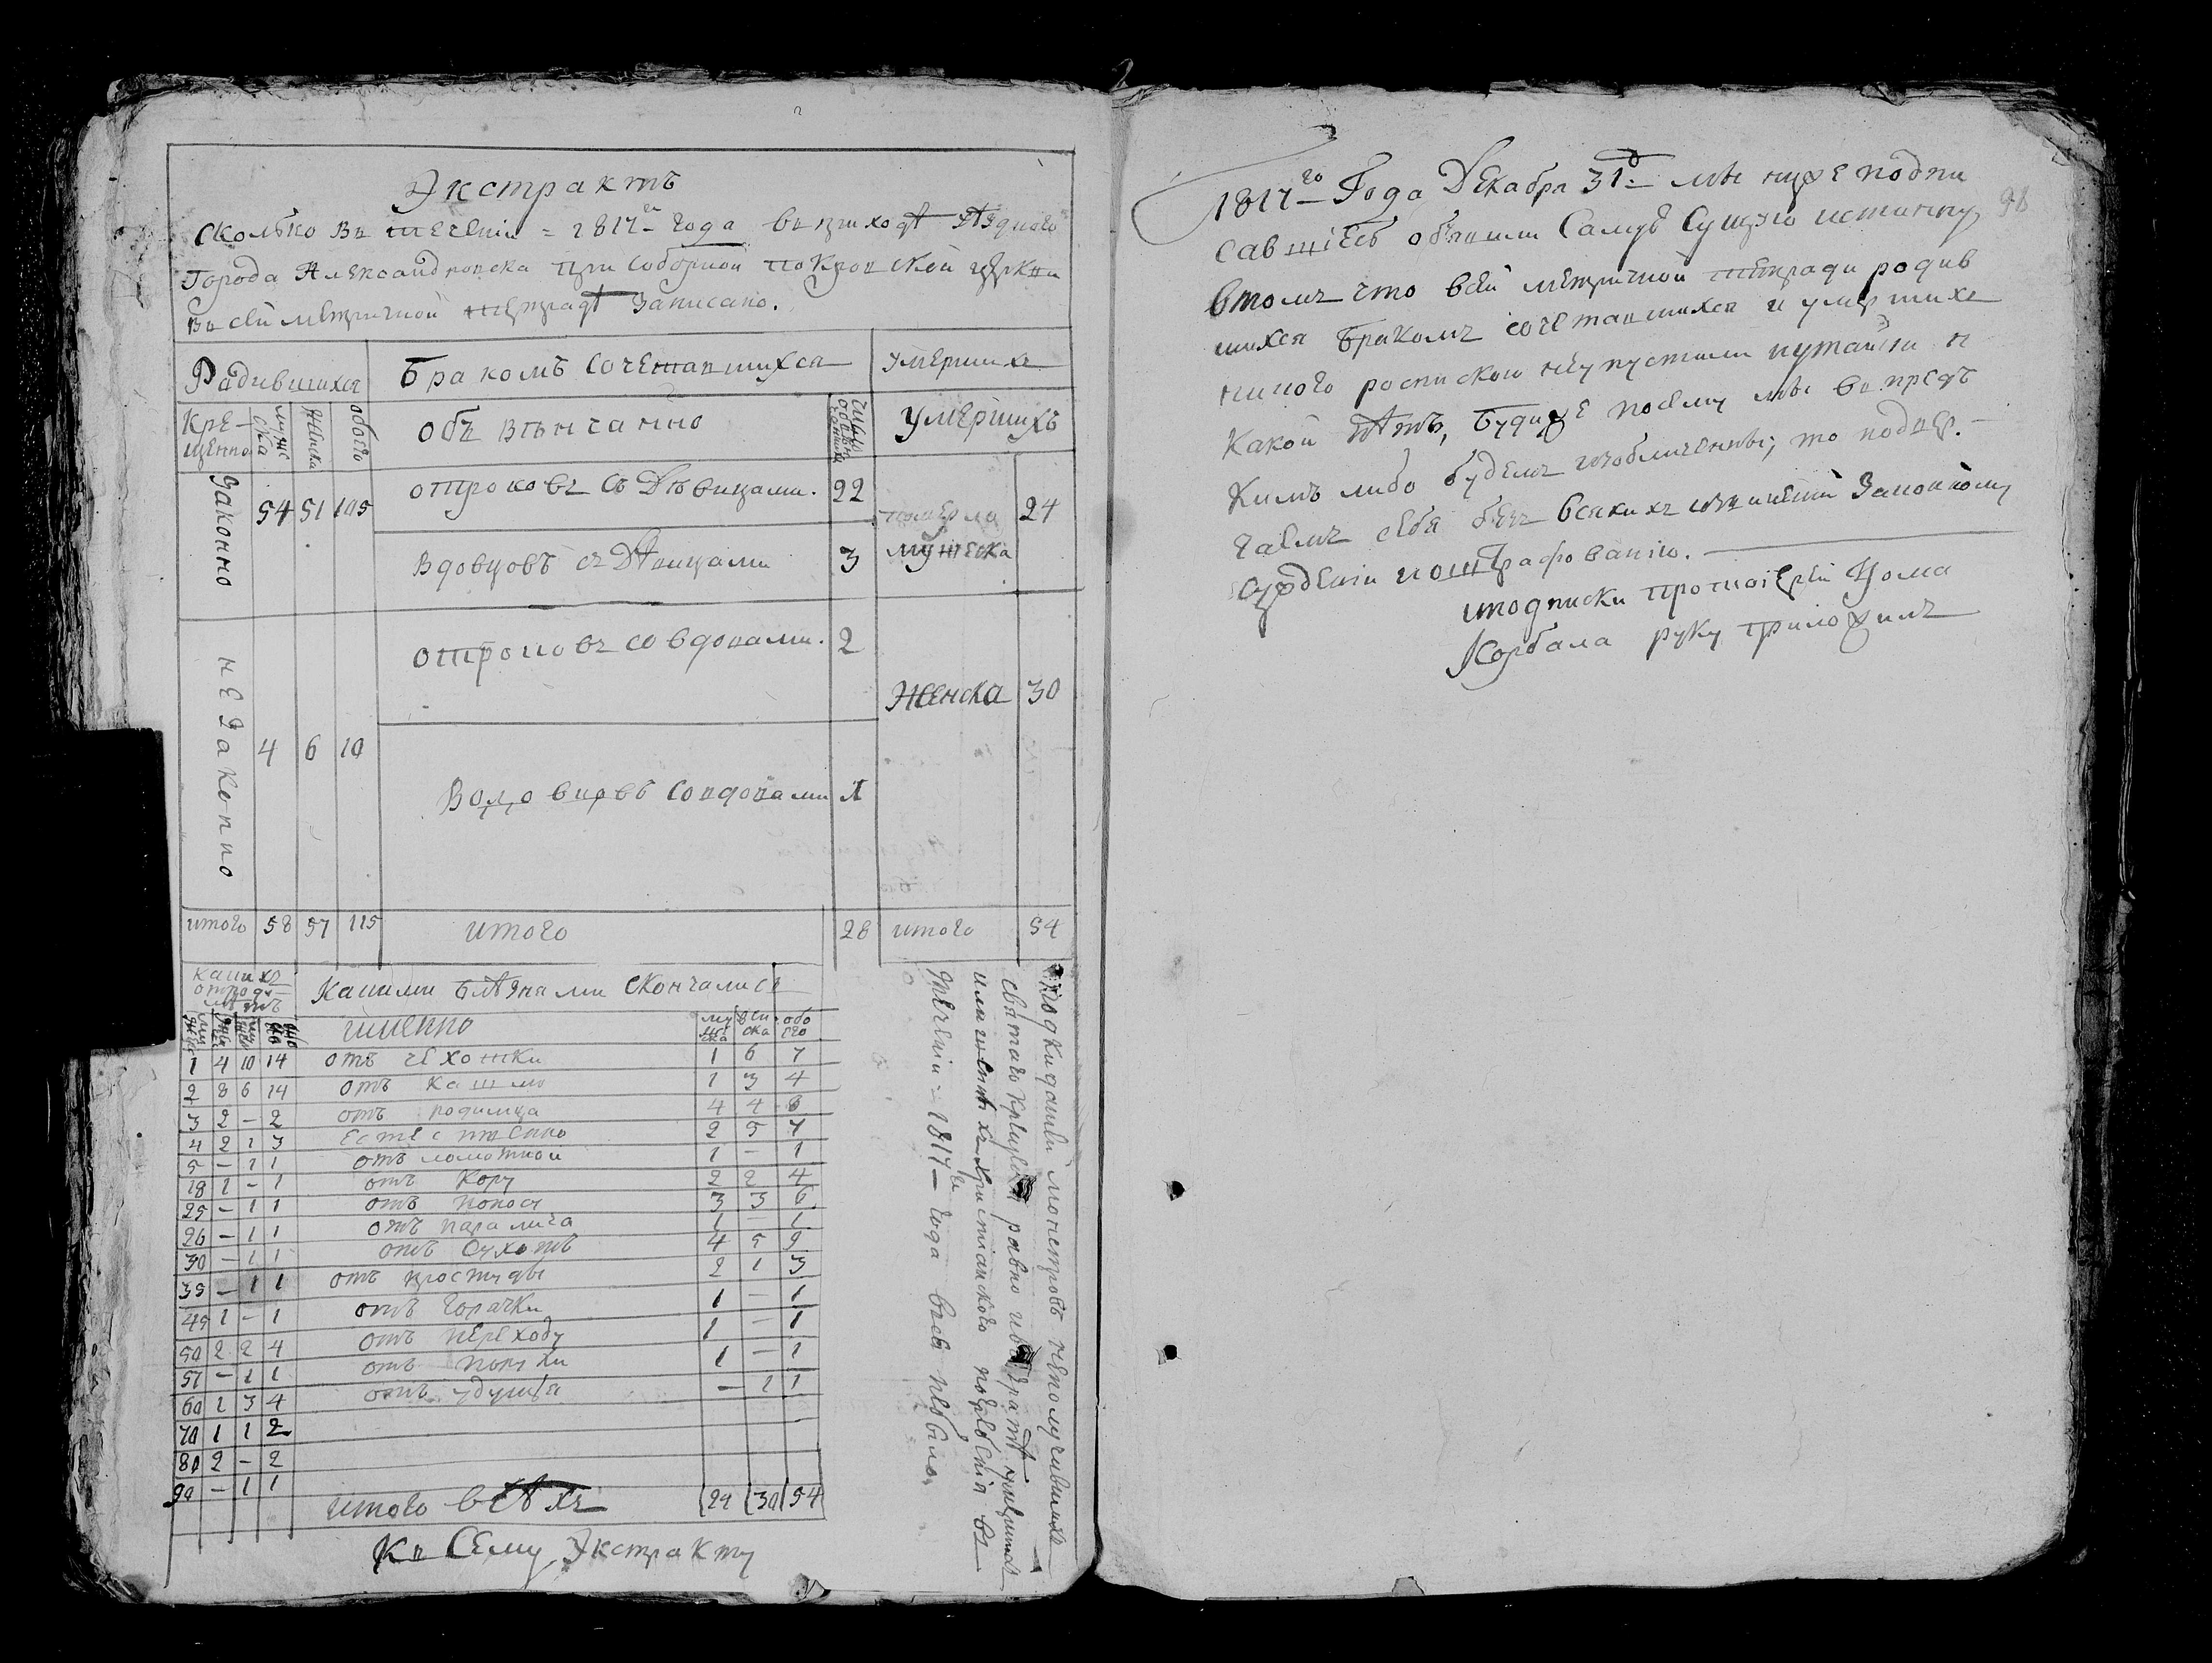 Экстрактъ
Сколько въ теченіи 1817го года въ приходѣ уѣзднаго
Города Александровска при Соборной Покровской церкви
въ сей метричной тетрадѣ Записано.
Радившихся Бракомъ Сочетавшихся Умершихъ
Кре-
щенно мужеска женска обоего объ вѣнчанно умершихъ
Законно 54 51 105 отроковъ съ Дѣвицами. 22 мужеска 24
Вдовцовъ съ Дѣвицами 3
незаконно 4 6 10 отроковъ со вдовами. 2 Женска 30
со вдовами 1
итого 58 57 115 итого 28 итого 54
Какими болѣзнями Скончались
именно мужеска женска обоего
1 4 10 14 отъ чехотки 1 6 7
2 8 6 14 отъ кашлю 1 3 4
3 2 — 2 отъ родимца 4 4 8
4 2 1 3 Естественно 2 5 7
5 — 1 1 отъ ломотной 1 — 1
18 1 — 1 отъ Кору 2 2 4
25 — 1 1 отъ поносу 3 3 6
26 — 1 1 отъ паралича 1 — 1
30 — 1 1 отъ Сухотъ 4 5 9
35 — 1 1 отъ простуды 2 1 3
45 1 — 1 отъ горячки 1 — 1
50 2 2 4 отъ переходу 1 — 1
57 — 1 1 отъ 1 — 1
60 1 3 4 отъ удушья — 1 1
70 1 1 2
80 2 — 2
90 — 1 1
итого всѣхъ 24 30 54
Къ Сему Экстракту
Подкидышей монстровъ неполучившихъ
святаго крещенія равно
христіанскаго погребенія въ
теченіи 1817го года вовсе небыло.
98
1817го Года Декабря 31д мы нижеподпи
савшіесь объявили Самую Сущую истинну
втомъ что всей метричной тетради родив
шихся бракомъ сочетавшихся и умершихъ
никого роспискою неупустили неутаили н
Какой лѣтъ, Будиже посему мы въ предъ
Кимъ либо будемъ изобличенны; то подвер.-
гаемъ себя безъ всякихъ извиненій Законному
Суждению и штрафованію.
иподписки протоіерей Фома
Корбала руку приложилъ